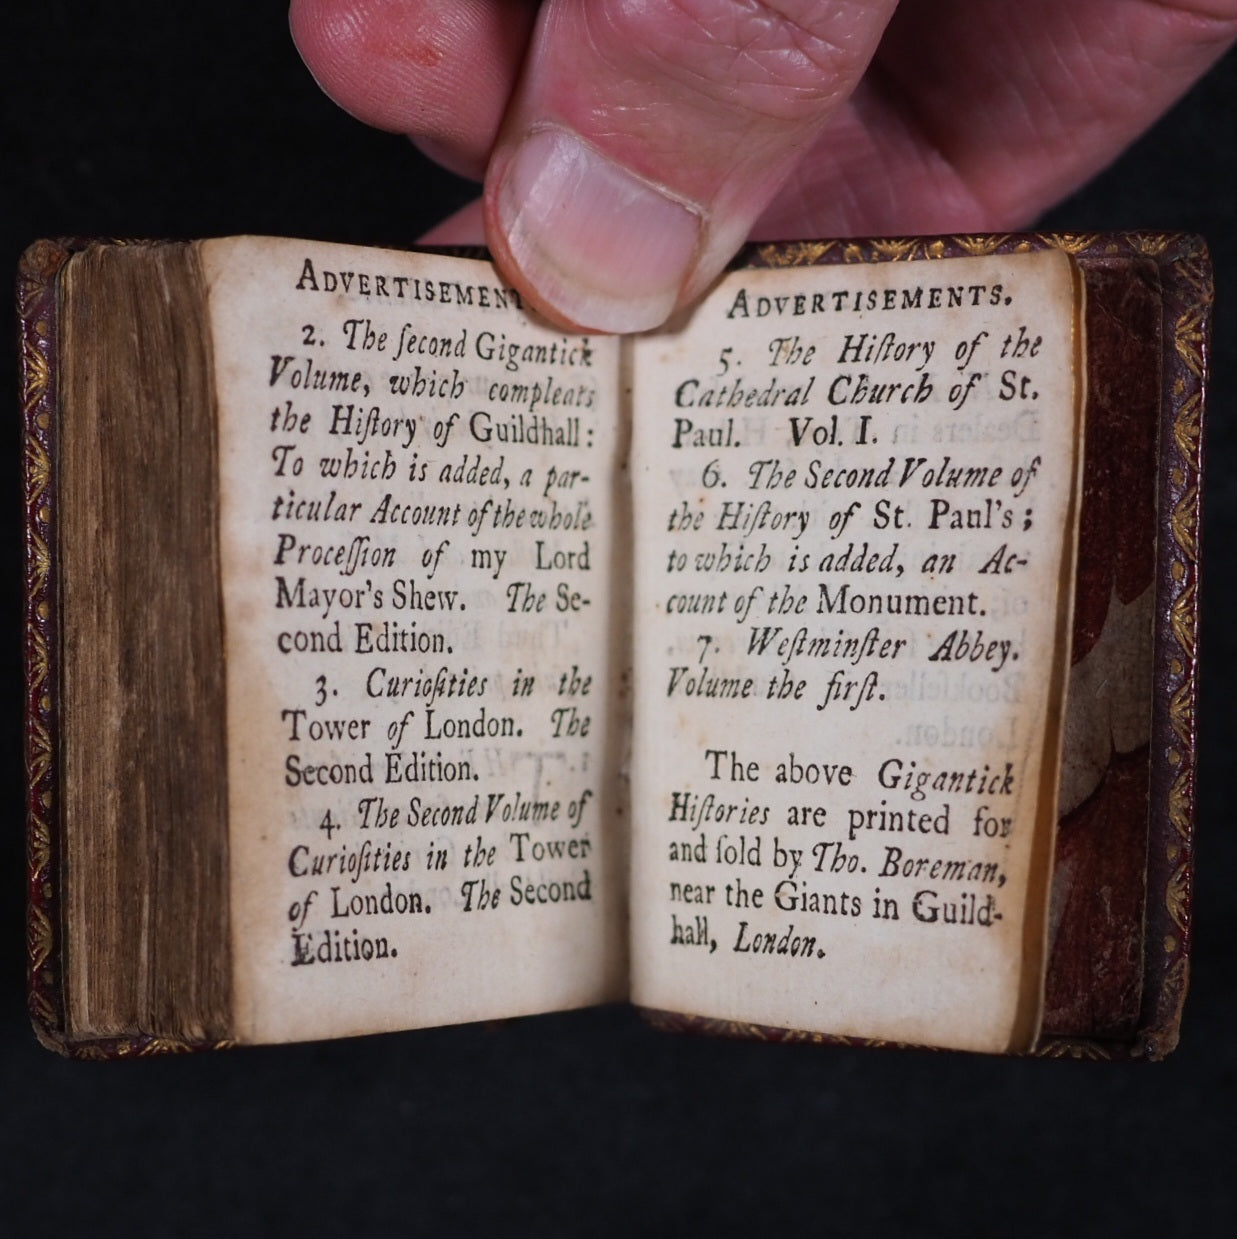 ADVERTISEMENT
2. The ſecond Gigantick
Volume, which compleats
the Hiſtory of Guildhall:
To which is added, a par-
ticular Account of the whole
Proceſſion of my Lord
Mayor's Shew. The Se-
cond Edition.
3. Curioſities in the
Tower of London. The
Second Edition.
4. The Second Volume of
Curioſities in the Tower
of London. The Second
Edition.
ADVERTISEMENTS.
5. The Hiſtory of the
Cathedral Church of St.
Paul. Vol. I.
6. The Second Volume of
the Hiſtory of St. Paul's;
to which is added, an Ac-
count of the Monument.
7. Weſtminſter Abbey.
Volume the firſt.
The above Gigantick
Hiſtories are printed for
and ſold by Tho. Boreman,
near the Giants in Guild-
hall, London.